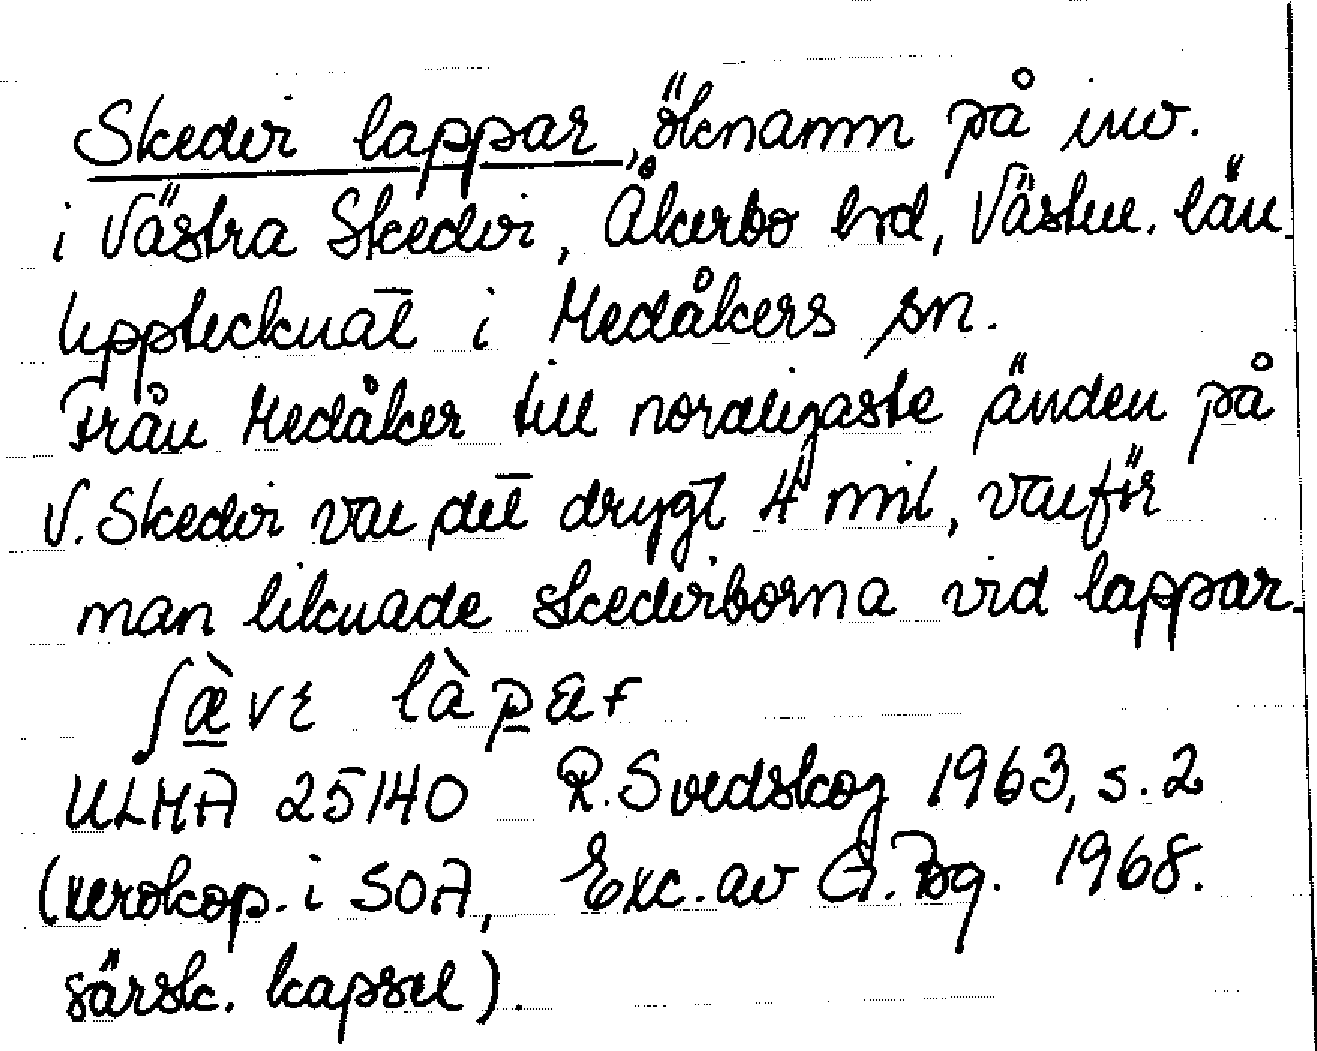 Skedvi lappar, öknamn på inv.
i Västra Skedvi, Åkerbo hrd, Västm. län.
Upptecknat i Medåkers sn.
Från Medåker till nordligaste änden på
V. Skedvi var det drygt 4 mil, varför
man liknade skedviborna vid lappar.
ʃæ̀vɩ làpær
ULMA 25140 R. Svedskog 1963, s. 2
(xerokop. i SOA, Exc. av G. 1968.
särsk. kapsel).